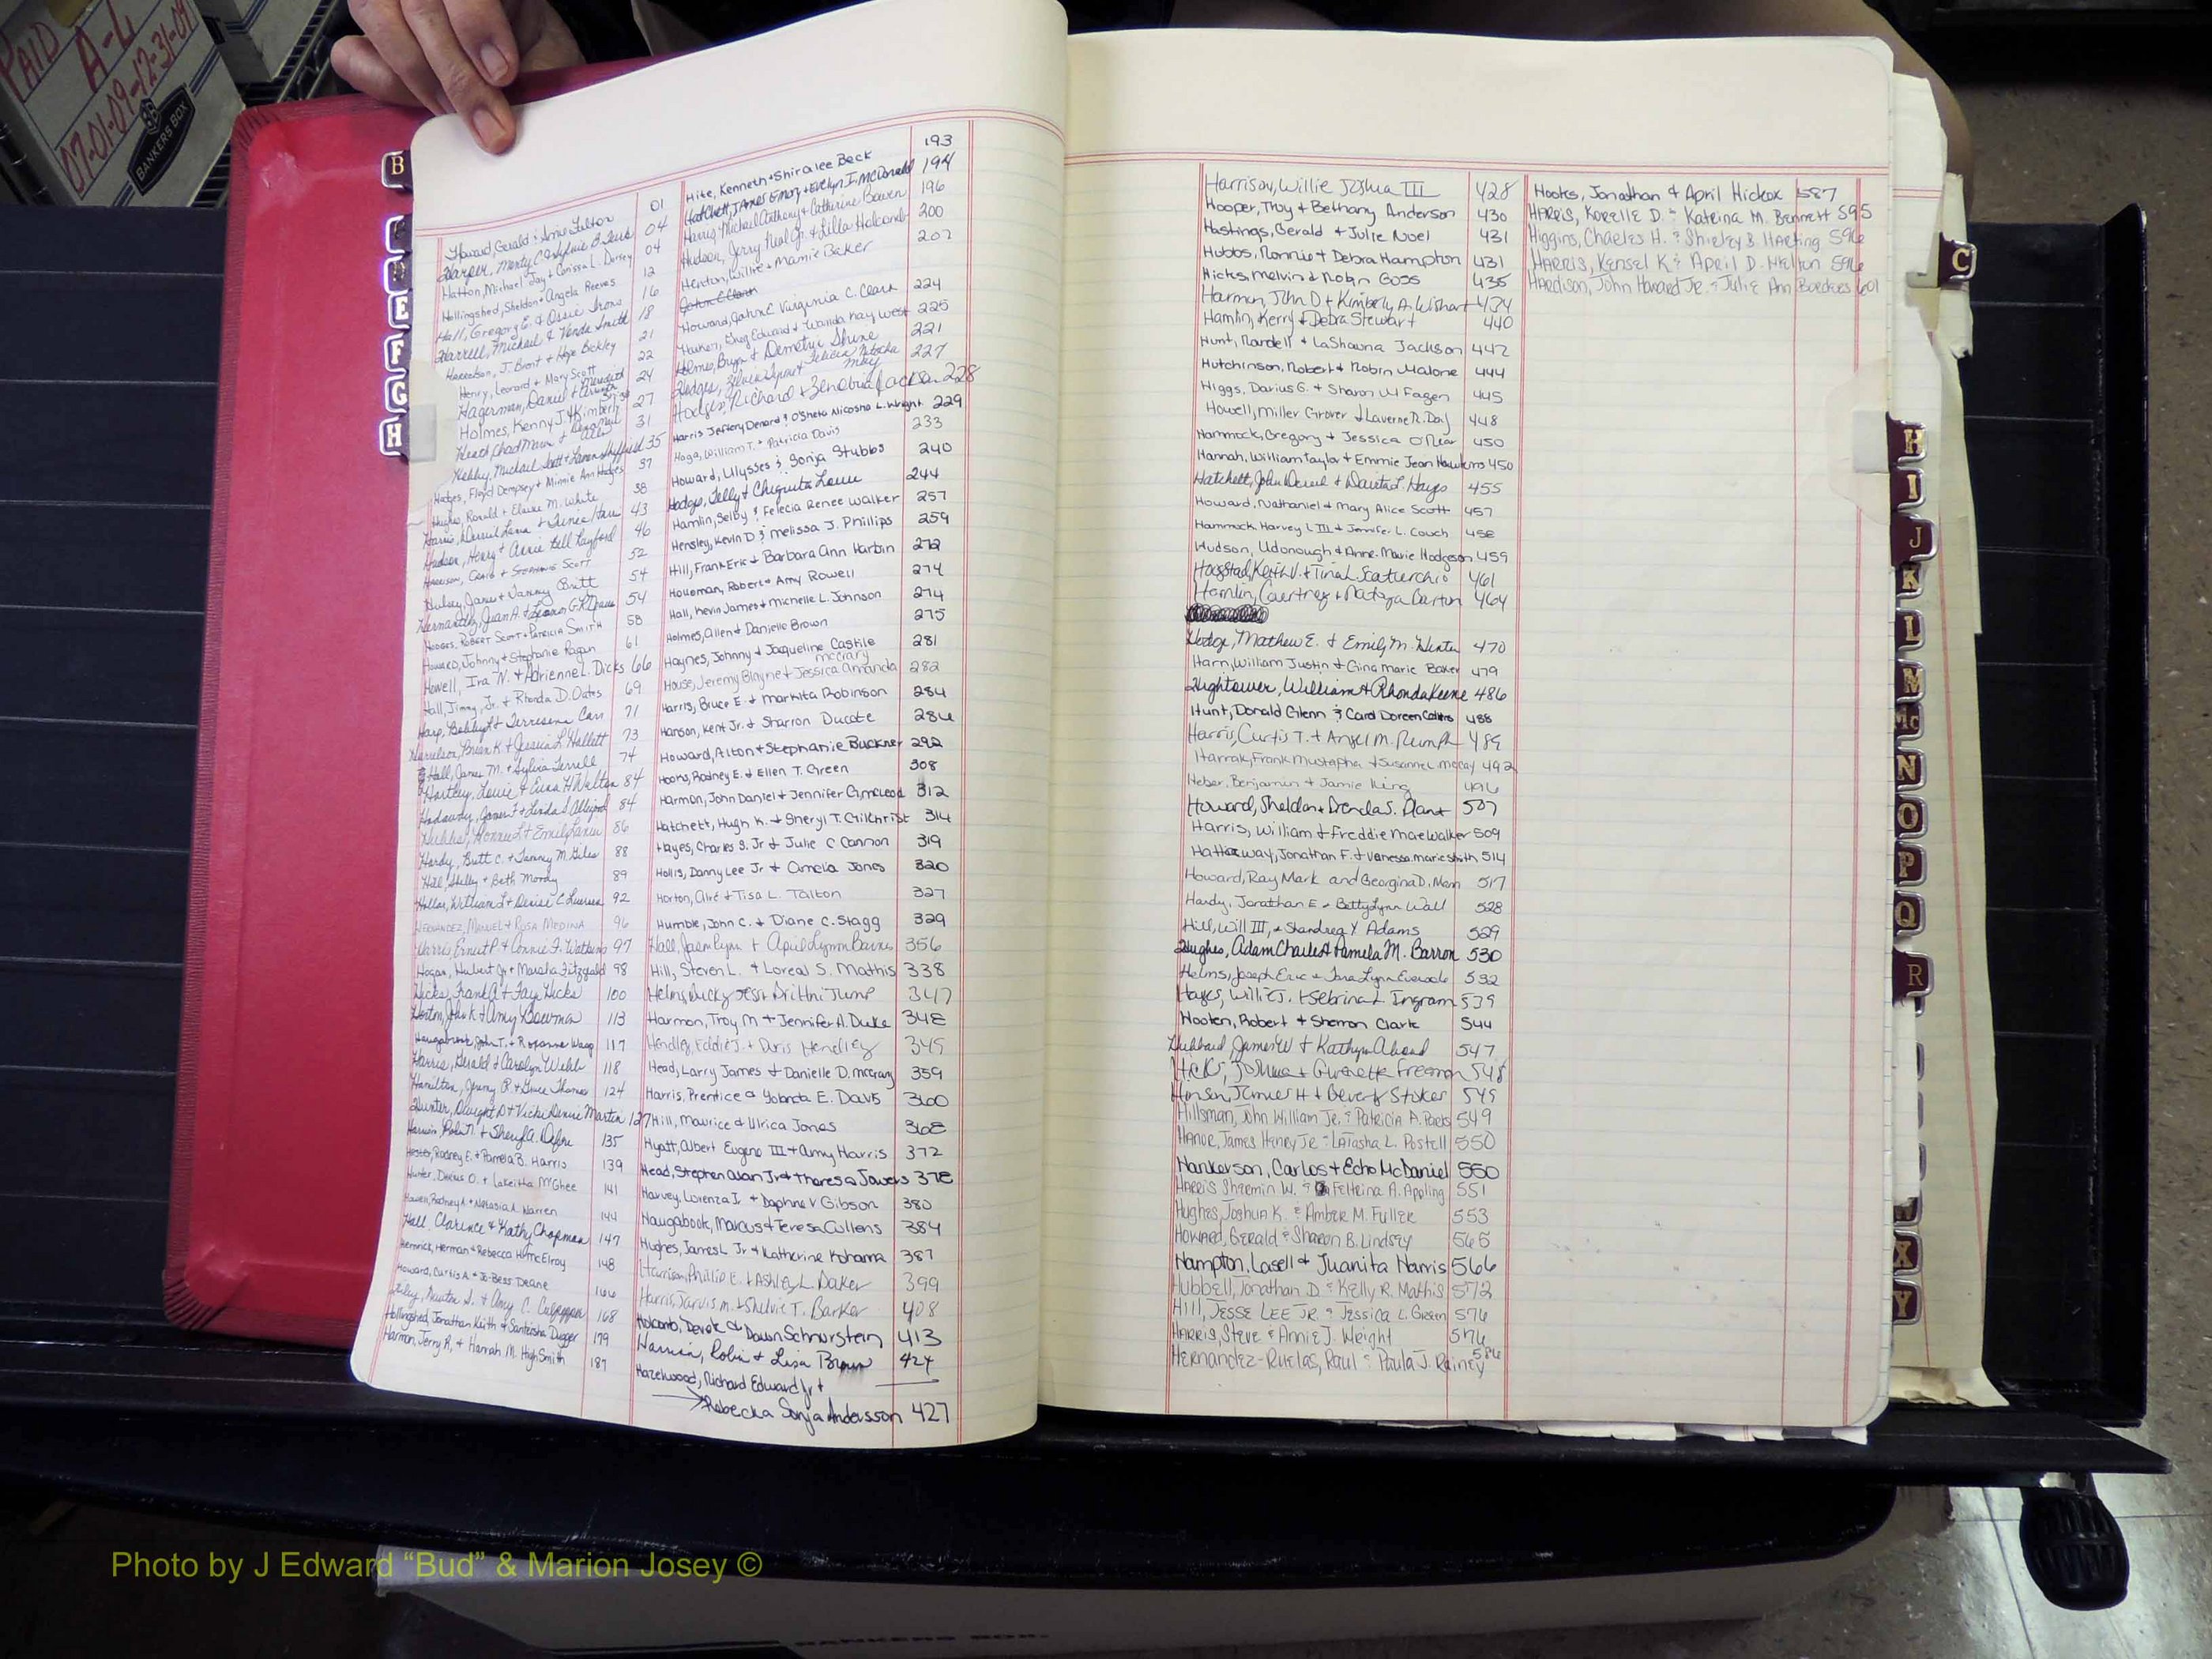 PAID
A-L
07-01-09-12-31-09
BANKERS BOX
B
E
F
G
H
Howard, Gerald & Anne Talton 01
Harper, Marty C & Sylvia B. 04
Hatton, Michael Jay & Carissa L. Dorsey 04
Hollingshed, Sheldon & Angela Reeves 12
Hall, Gregory E. & Ossie Irons 16
Harrell, Michael & Vonda Smith 18
Harrelson, J. Brent & Hope Beckley 21
Henry, Leonard & Mary Scott 22
Hagerman, Daniel & Meredith 24
Holmes, Kenny J. & Kimberly 27
Heath, Chad 31
Michael Scott & 35
Hodges, Floyd Dempsey & Minnie Ann Hodges 37
Hughes, Ronald & Elaine M. White 38
Harris, 43
Hudson, Henry & Annie Bell Rayford 46
Harrison, Craig & Stephanie Scott 52
Hulsey, James & Tammy Britt 54
Hernandez, Juan A. & 54
Hodges, Robert Scott & Patricia Smith 58
Howard, Johnny & Stephanie Ragan 61
Howell, Ira N. & Adrienne L. Dicks 66
Hall, Jimmy, Jr. & Rhonda D. Oates 69
Harp, Bobby L & Terresena Carr 71
Harrelson, Brian K & Jessica L Hallett 73
Hall, James M. & Sylvia Terrell 74
Hartley, Louie & Euna H Walton 84
Hadaway, James T & Linda S Allegood 84
86
Hardy, Brett C. & Tammy M. Giles 88
Hill, Shelly & Beth Moody 89
92
Hernandez, Manuel & Rosa Medina 96
Harris, Ernest P & Connie F. Watkins 97
Hogan, Hubert Jr & Marsha Fitzgerald 98
Hicks, Frank A & Faye Hicks 100
Horton, John K & Amy Bowman 113
Haugabrook, John T. & Roxanne 117
Harris, Gerald & Carolyn Webb 118
Hamilton, Jeremy R. & Grace Thomas 124
Hunter, Dwight D & Vicki Denise Martin 127
135
Hester, Rodney E. & Pamela B. Harris 139
Hunter, Darius O. & Lakeitha McGhee 141
Howell, Rodney A & Warren 144
Hall, Clarence & Kathy Chapman 147
Hemrick, Herman & Rebecca H. McElroy 148
Howard, Curtis A. & Jo-Bess Deane 166
& Amy C. Culpepper 168
Hollingshed, Jonathan Keith & Santeisha Dugger 179
Harmon, Jerry R. & Hannah M. HighSmith 187
Hite, Kenneth & Shiralee Beck 193
Hatchett, James Emory & Evelyn I. McDonald 194
Harris, Michael Anthony & Catherine Bowen 196
Hudson, Jerry Neal Jr. & Lilla Holcomb 200
Henton, Willie & Mamie Baker 207
John C Clark
Howard, John C Virginia C. Clark 224
Haiken, Greg Edward & Wanda Kay West 225
Holmes, Bryan & Demetri Shine 221
Hodges, & Felicia Natasha May 227
Hodges, Richard & Zenobia Jackson 228
Harris Jeffery Denard & O'Shetu Nicosha L. Wright 229
Hogg, William T. & Patricia Davis 233
Howard, Ulysses & Sonja Stubbs 240
Hodges, Telly & Chiquita Lowe 244
Hamlin, Selby & Felecia Renee Walker 257
Hensley, Kevin D & Melissa J. Phillips 259
Hill, Frank Eric & Barbara Ann Harbin 272
Holleman, Robert & Amy Rowell 274
Hall, Kevin James & Michelle L. Johnson 274
Holmes, Allen & Danielle Brown 275
Haynes, Johnny & Jaqueline Castile 281
House, Jeremy Blayne & Jessica Amanda McCrary 282
Harris, Bruce E. & Markita Robinson 284
Hanson, Kent Jr. & Sharron Ducote 286
Howard, Alton & Stephanie Buckner 292
Hoons, Rodney E. & Ellen T. Green 308
Harmon, John Daniel & Jennifer G. McLeod 312
Hatchett, Hugh K. & Sheryl T. Gilchrist 314
Hayes, Charles S. Jr & Julie C Cannon 319
Hollis, Danny Lee Jr & Amelia Jones 320
Horton, Clint & Tisa L. Talton 327
Humble, John C. & Diane C. Stagg 329
Hall, Jason Lynn & April Lynn Barnes 356
Hill, Steven L. & Loreal S. Mathis 338
Helms, Bucky Jess & Brittni Jump 347
Harmon, Troy M & Jennifer A. Duke 348
Hendley, Eddie J. & Doris Hendley 349
Head, Larry James & Danielle D. McCrary 359
Harris, Prentice & Yolanda E. Davis 360
Hill, Maurice & Ulrica Jones 368
Hyatt, Albert Eugene III & Amy Harris 372
Head, Stephen Alan Jr & Theresa Jowers 378
Harvey, Lorenza Jr. & Daphne V Gibson 380
Haugabook, Marcus & Teresa Cullens 384
Hughes, James L Jr & Katherine Kohanna 387
Harrison, Phillip E. & Ashley L. Baker 399
Harris, Jarvis M. & Shelvie T. Barker 408
Holcomb, Derek & Dawn Schnurstein 413
Harmon, Robin & Lisa Brown 424
Hazelwood, Richard Edward Jr &
Rebecka Sonja Andersson 427
Harrison, Willie Joshua III 428
Hooper, Troy & Bethany Anderson 430
Hastings, Gerald & Julie Noel 431
Hubbs, Ronnie & Debra Hampton 431
Hicks, Melvin & Robin Goss 435
Harmon, John D & Kimberly A. Wishart 434
Hamlin, Kerry & Debra Stewart 440
Hunt, Nardell & LaShauna Jackson 442
Hutchinson, Robert & Robin Malone 444
Higgs, Darius G. & Sharon M Fagen 445
Howell, Miller Grover & Laverne R. Day 448
Hammock, Gregory & Jessica O'Near 450
Hannah, William Taylor & Emmie Jean Hawkins 450
Hatchett, John Derek & Davita L. Hayes 455
Howard, Nathaniel & Mary Alice Scott 457
Hammock Harvey L III & Jennifer L. Couch 458
Hudson, Udonough & Anne-Marie Hodgeson 459
Hagstad, Keith V. & Tina L. Scaturchio 461
Hamlin, Courtney & Natoya Barton 464
Hodge, Mathew E. & Emily M. Hunter 470
Harn, William Justin & Gina Marie Baker 479
Hightower, William & Rhonda Keene 486
Hunt, Donald Glenn & Carol Doreen Collins 488
Harris, Curtis T. & Angel M. Rumph 489
Harrak, Frank Mustapha & Susanne L. McCay 492
Heber, Benjamin & Jamie King 496
Howard, Sheldon & Brenda S. Plant 507
Harris, William & Freddie Mae Walker 509
Hathaway, Jonathan F. & Vanessa Marie Smith 514
Howard, Ray Mark and Georgina D. Mann 517
Hardy, Jonathan E & Betty Lynn Wall 528
Hill, Will III, & Shandrea Y Adams 529
Hughes, Adam Charles & Pamela M. Barron 530
Helms, Joseph Eric & Tara Lynn Eversole 532
Hayes, Willie J. & Sebrina L Ingram 539
Hooten, Robert & Sherron Clark 544
Hubbard, James W & Kathyn Aboud 547
Hicks, Joshua & Gwenetta Freeman 548
Hansen, James H & Beverly Stoker 549
Hillsman, John William Jr. & Patricia A. Parks 549
Hanoe, James Henry Jr & LaTasha L. Postell 550
Hankerson, Carlos & Echo McDaniel 550
Harris Sharmin W. & Feltrina A. Appling 551
Hughes, Joshua K. & Amber M. Fuller 553
Howard, Gerald & Sharon B. Lindsey 565
Hampton, Losell & Juanita Harris 566
Hubbell, Jonathan D. & Kelly R. Mathis 572
Hill, Jesse Lee Jr. & Jessica L. Green 576
Harris, Steve & Annie J. Wright 576
Hernandez-Ruelas, Raul & Paula J. Rainey 586
Hooks, Jonathan & April Hickox 587
Harris, Korelle D. & Katrina M. Bennett 595
Higgins, Charles H. & Shirley B. Harting 596
Harris, Kensel K & April D. Helton 596
Hardison, John Howard Jr. & Julie Ann Boedges 601
C
H
I
J
K
L
M
Mc
N
O
P
Q
R
X
Y
Photo by J Edward “Bud” & Marion Josey ©